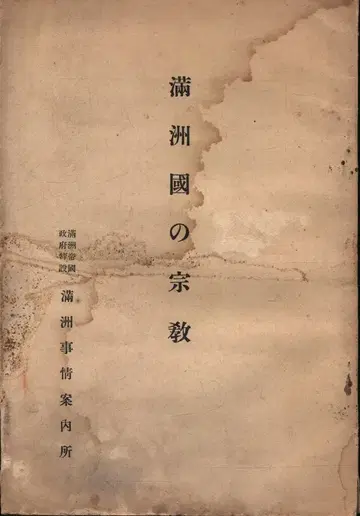 滿洲國の宗教
滿洲帝國
政府特設
滿洲事情案内所